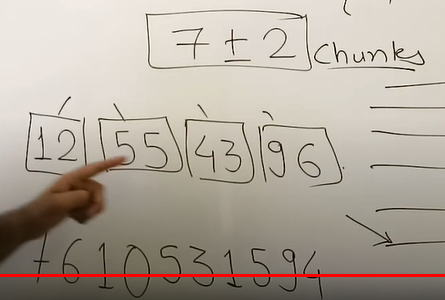 7 ± 2 Chunks
12 55 43 96
7610531594